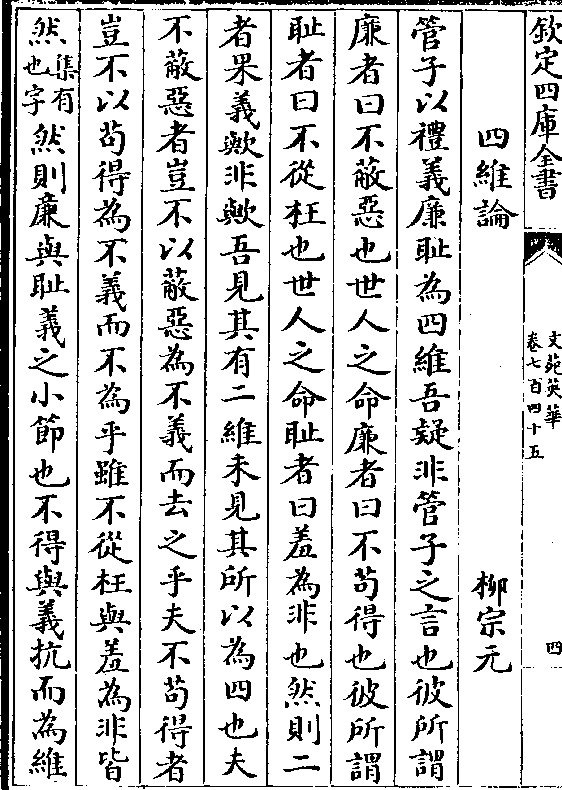 欽定四庫全書
文苑英華
卷七百四十五
四
四維論 柳宗元
管子以禮義廉恥為四維吾疑非管子之言也彼所謂
廉者曰不蔽惡也世人之命廉者曰不苟得也彼所謂
恥者曰不從枉也世人之命恥者曰羞為非也然則二
者果義歟非歟吾見其有二維未見其所以為四也夫
不蔽惡者豈不以蔽惡為不義而去之乎夫不苟得者
豈不以苟得為不義而不為乎雖不從枉與羞為非皆
然集有也字然則廉與恥義之小節也不得與義抗而為維